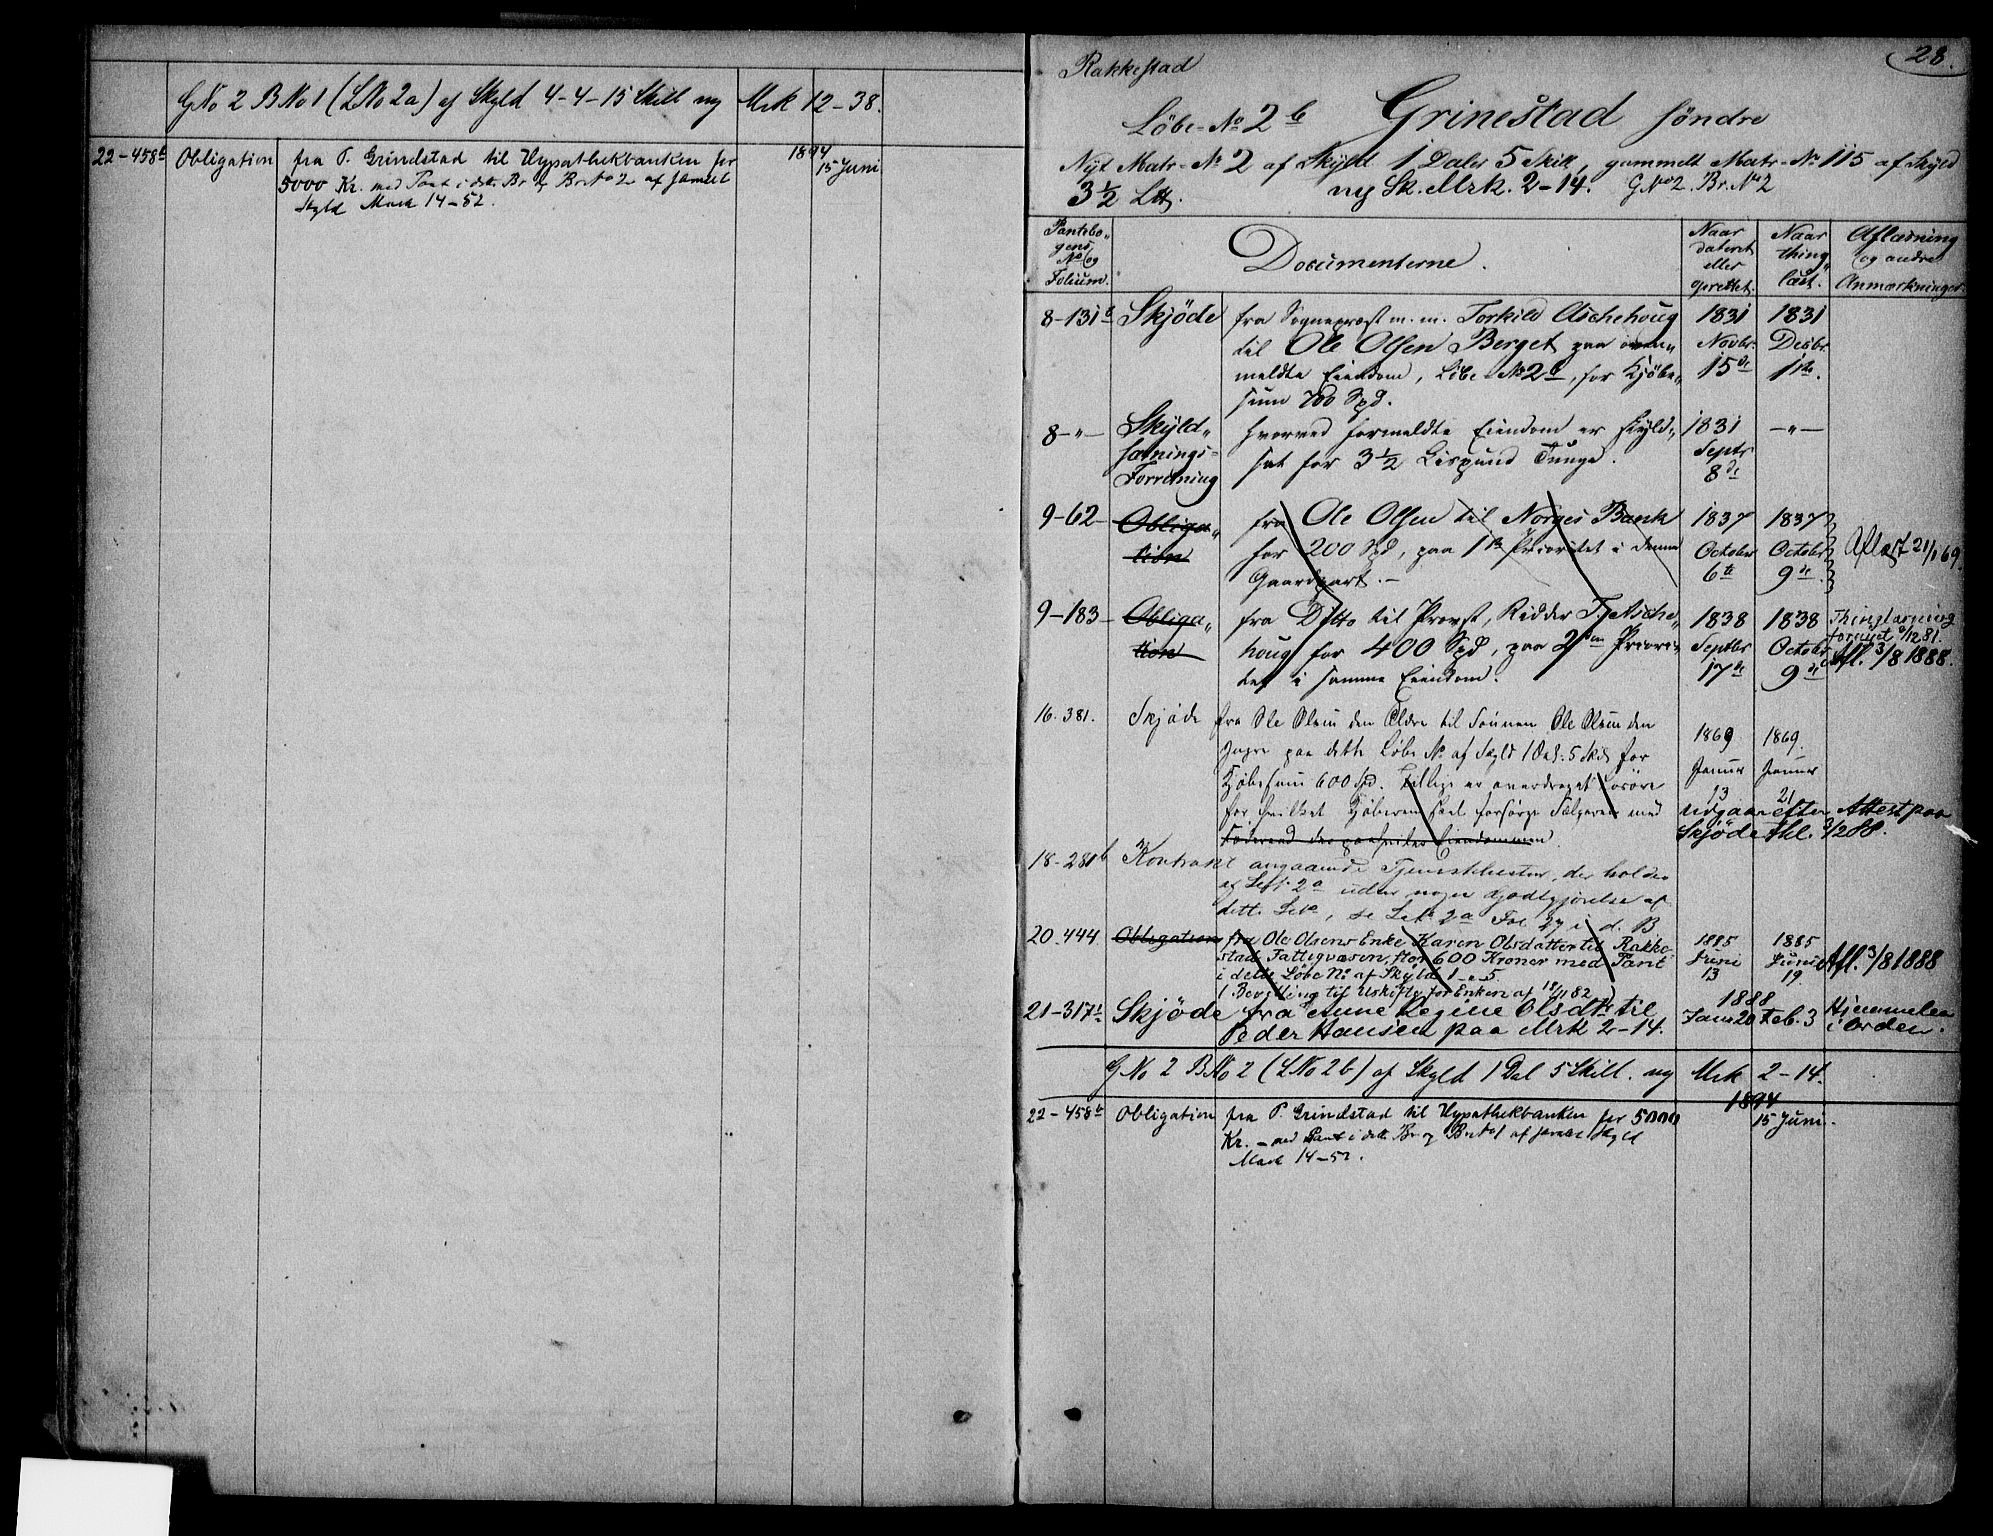 GNo 2 BNo 1 (LNo 2a) af Skyld 4-4-15 Skill ny Mrk 12-38.
22-458b Obligation fra P. Grindstad til Hypothekbanken for 1894
5000 Kr. med Pant i dette Br og BrNo 2 af samlet 15 Juni
Skyld Mark 14-52.
28.
Rakkestad
Løbe-No 2b Grinestad søndre
Nyt Matr-No 2 af Skyld 1 Daler 5 Skill, gammelt Matr-No 115 af Skyld
3½ L℔. ny Sk. Mrk. 2-14. GNo 2. Br.No 2
Pantebo„
gens
No og
Folium.
Documenterne.
Naar
dateret
eller
oprettet.
Naar
thing„
læst.
Aflæsning
og andre
Anmærkninger
8-131b Skjøde fra Sognepræst m.m. Torkild Aschehoug 1831 1831
til Ole Olsen Berget paa oven„ Novbr. Decbr.
meldte Eiendom, Løbe No 2b, for Kjøbe„ 15de 1ste.
sum 700 Spd.
8-„- Skyld„ hvorved formeldte Eiendom er skyld„ 1831 -„-
sætnings- sat for 3½ Lispund Tunge. Septbr
Forretning 8de
9-62 Obliga„ fra Ole Olsen til Norges Bank 1837 1837
tion for 200 Spd, paa 1ste Prioritet i denne October October Aflæst 21/1 69.
Gaardpart.- 6te 9de
9-183 Obliga„ fra Ditto til Provst, Ridder T. Asche„ 1838 1838 Thinglæsning
tion houg for 400 Spd, paa 2den Priori„ Septbr October fornyet 9/12 81.
tet i samme Eiendom. 17de 9de Afl. 3/8 1888.
16.381. Skjøde fra Ole Olsen den Ældre til Sønnen Ole Olsen den
Yngre paa dette Løbe No af Skyld 1 Dal. 5 Skill. for 1869 1869.
Kjøbesum 600 Spd. Tillige er overdraget Løsøre Januar Januar
for hvilket Kjøberen skal forsørge Sælgeren med 13 21
Føderaad der paahviler Eiendommen.
udgaar efter Attest paa
Skjøde thl. 3/2 88.
18-281b Kontrakt angaaende Tjenestehester, der holdes
af LNo 2a uden nogen Godtgjørelse af
dette LNo, se LNo 2a Fol 27 i d. B
20.444 Obligation fra Ole Olsens Enke Karen Olsdatter til Rakke- 1885 1885
stads Fattigvæsen, stor 600 Kroner med Pant Juni Juni Afl. 3/8 1888
i dette Løbe No af Skyld 1-„-5 13 19.
(Bevilling til Uskifte for Enken af 18/11 82)
21-317b Skjøde fra Anne Regine Olsdtr. til 1888 Hjemmelen
Peder Hansen paa Mrk 2-14. Janr 20 Feb. 3 i Orden.
GNo 2 BNo 2 (LNo 2b) af Skyld 1 Dal 5 Skill. ny Mrk 2-14.
22-458b Obligation fra P. Grindstad til Hypothekbanken for 5000 1894
Kr. - med Pant i dette Br og BrNo 1 af samlet Skyld 15 Juni.
Mark 14-52.